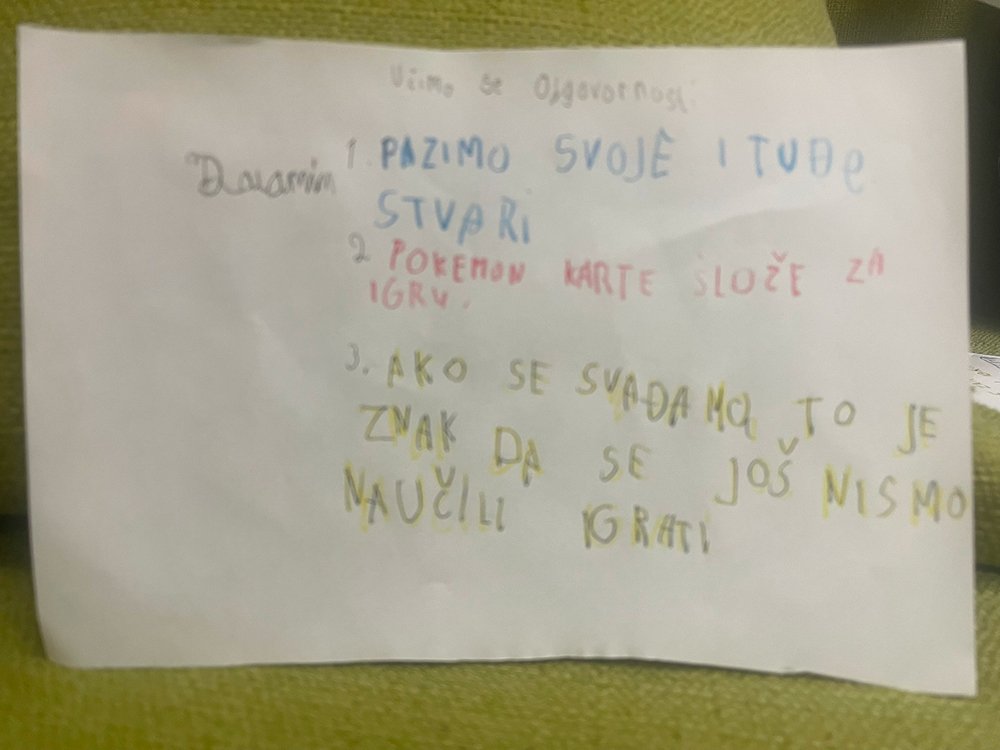 Učimo se Odgovornosti
1. PAZIMO SVOJE I TUĐe
STVARI
2 POKEMON KARTE SLOŽE ZA
IGRU.
3. AKO SE SVAĐAMO, TO JE
ZNAK DA SE JOŠ NISMO
NAUČILI IGRATI